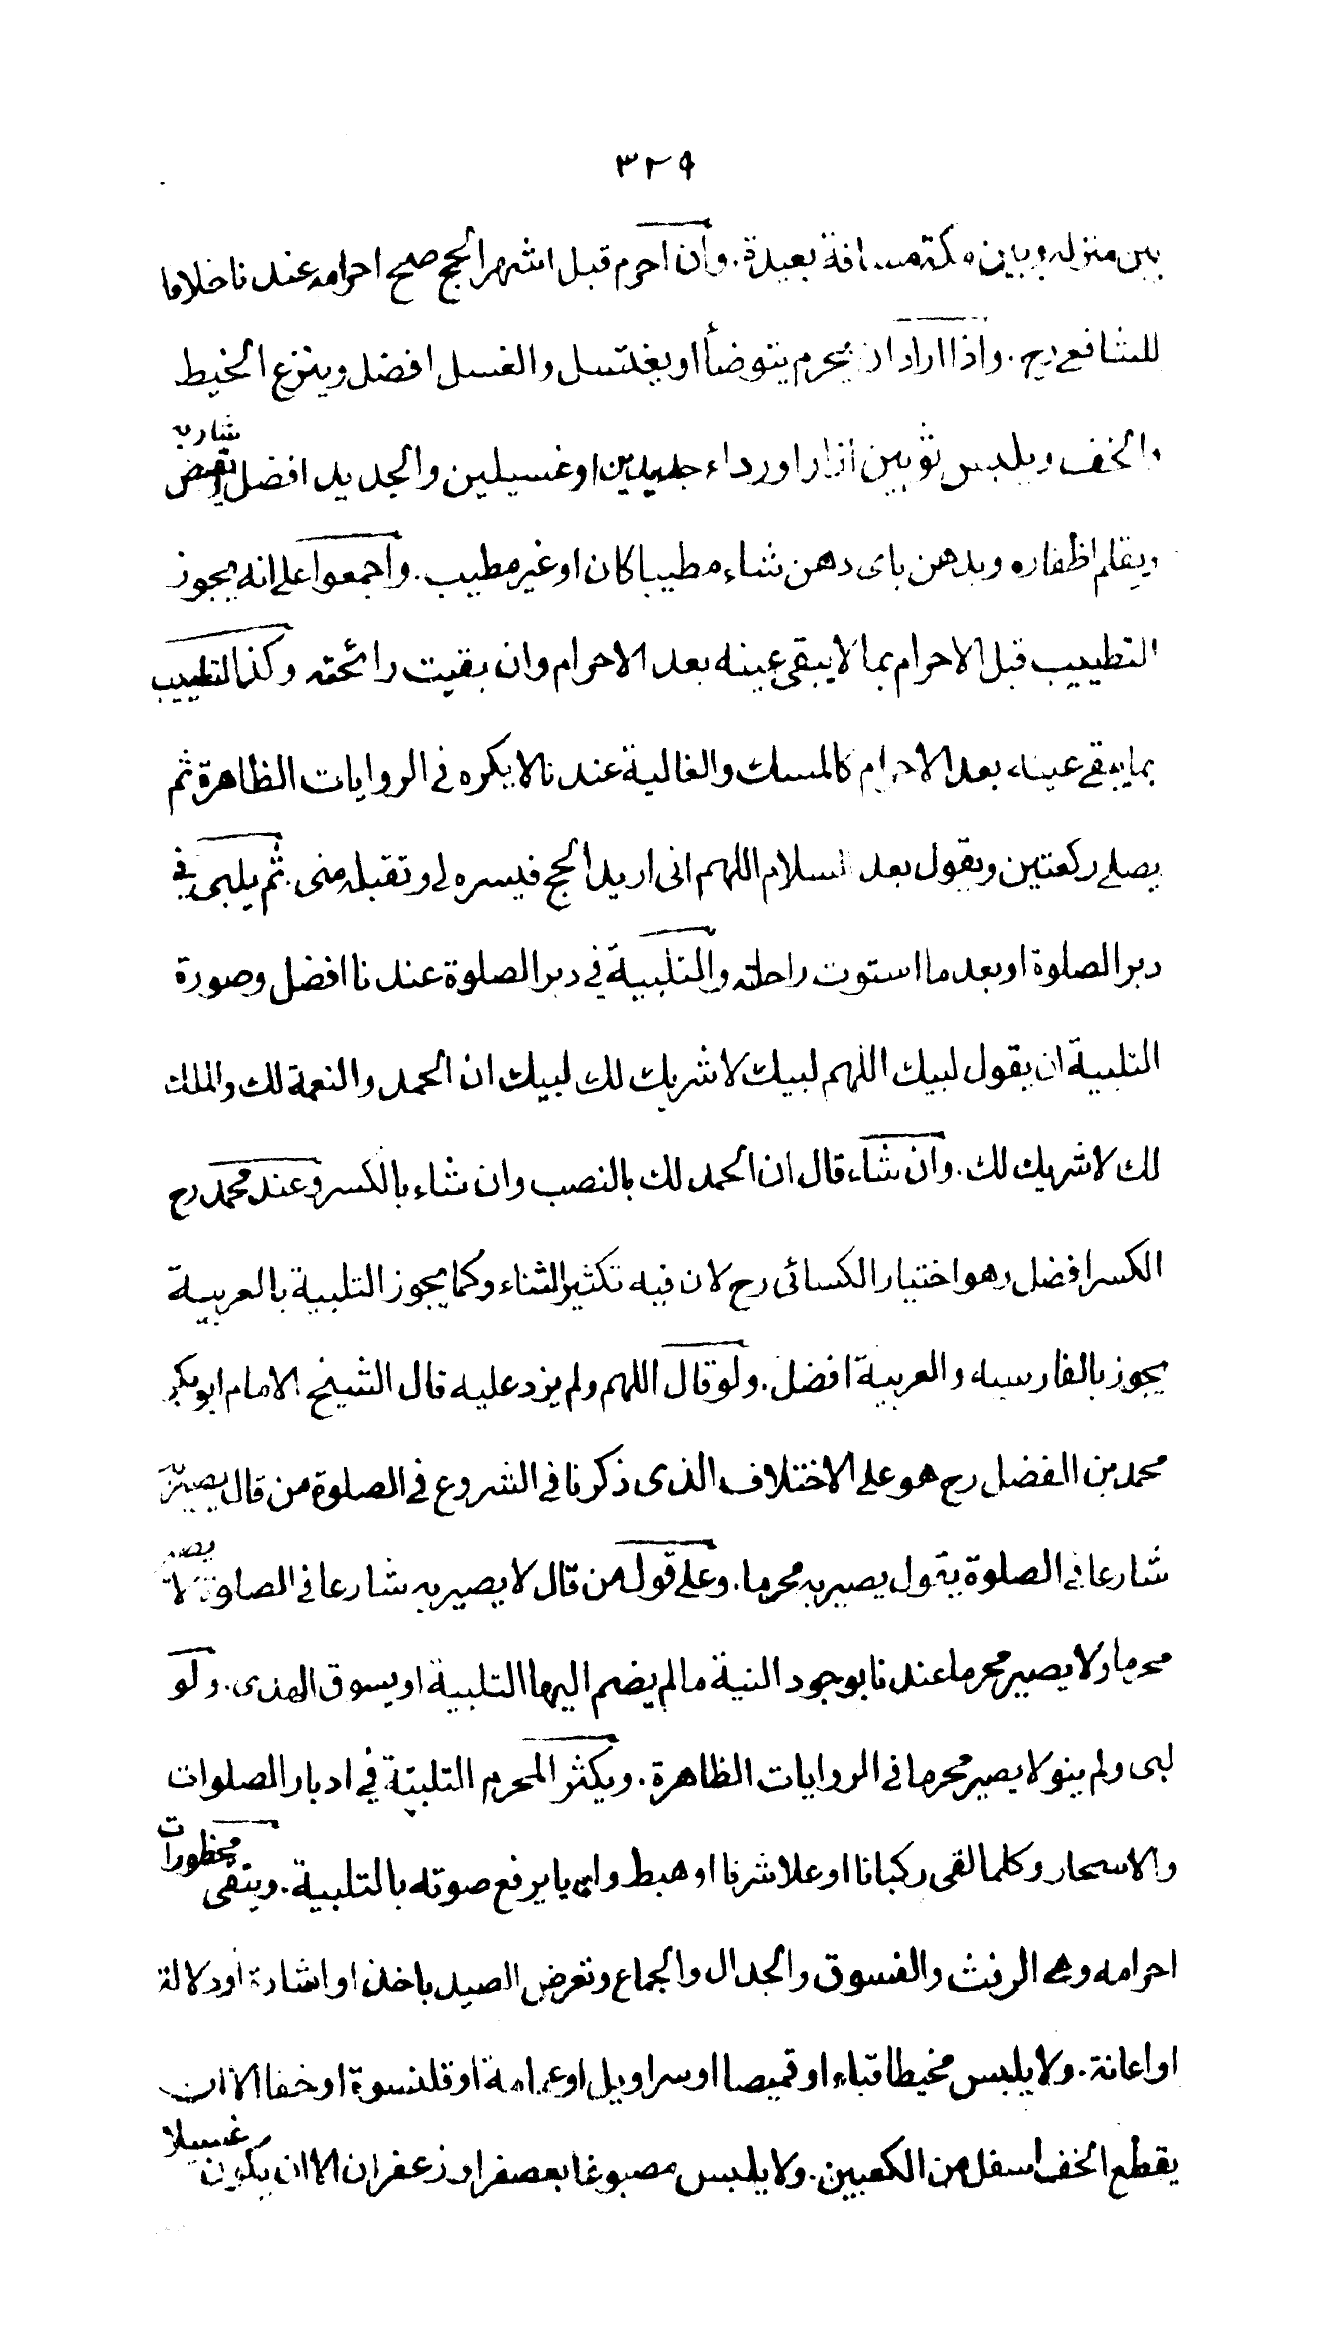 ٣٢٩
بين منزله وبين مكة مسافة بعيدة. وان احرم قبل اشهر الحج صح احرامه عندنا خلافا
للشافعي رح. واذا اراد ان يحرم يتوضأ او يغتسل والغسل افضل وينزع المخيط
والخف ويلبس ثوبين ازارا ورداء جديدين او غسيلين والجديد افضل ويقص شاربه
ويقلم اظفاره ويدهن باى دهن شاء مطيبا كان او غير مطيب. واجمعوا على انه يجوز
التطييب قبل الاحرام بما لا يبقى عينه بعد الاحرام وان بقيت رائحته وكذا التطييب
بما يبقى عينه بعد الاحرام كالمسك والغالية عندنا لا يكره في الروايات الظاهرة ثم
يصلى ركعتين ويقول بعد السلام اللهم انى اريد الحج فيسره لى وتقبله منى. ثم يلبى في
دبر الصلوة او بعد ما استوت راحلته والتلبية في دبر الصلوة عندنا افضل وصورة
التلبية ان يقول لبيك اللهم لبيك لا شريك لك لبيك ان الحمد والنعمة لك والملك
لك لا شريك لك. وان شاء قال ان الحمد لك بالنصب وان شاء بالكسر وعند محمد رح
الكسر افضل وهو اختيار الكسائى رح لان فيه تكثير الثناء وكما يجوز التلبية بالعربية
يجوز بالفارسية والعربية افضل. ولو قال اللهم ولم يزد عليه قال الشيخ الامام ابو بكر
محمد بن الفضل رح هو على الاختلاف الذى ذكرنا في الشروع في الصلوة من قال يصير به
شارعا في الصلوة يقول يصير به محرما. وعلى قول من قال لا يصير به شارعا في الصلوة لا يصير
محرما ولا يصير محرما عندنا بوجود النية ما لم يضم اليها التلبية او يسوق الهدى. ولو
لبى ولم ينو لا يصير محرما في الروايات الظاهرة. ويكثر المحرم التلبية في ادبار الصلوات
والاسحار وكلما لقى ركبانا او علا شرفا او هبط واديا يرفع صوته بالتلبية. ويتقى محظورات
احرامه وهى الرفث والفسوق والجدال والجماع وتعرض الصيد باخذ او اشارة او دلالة
او اعانة. ولا يلبس مخيطا قباء او قميصا او سراويل او عمامة او قلنسوة او خفا الا ان
يقطع الخف اسفل من الكعبين. ولا يلبس مصبوغا بعصفر او زعفران الا ان يكون غسيلا